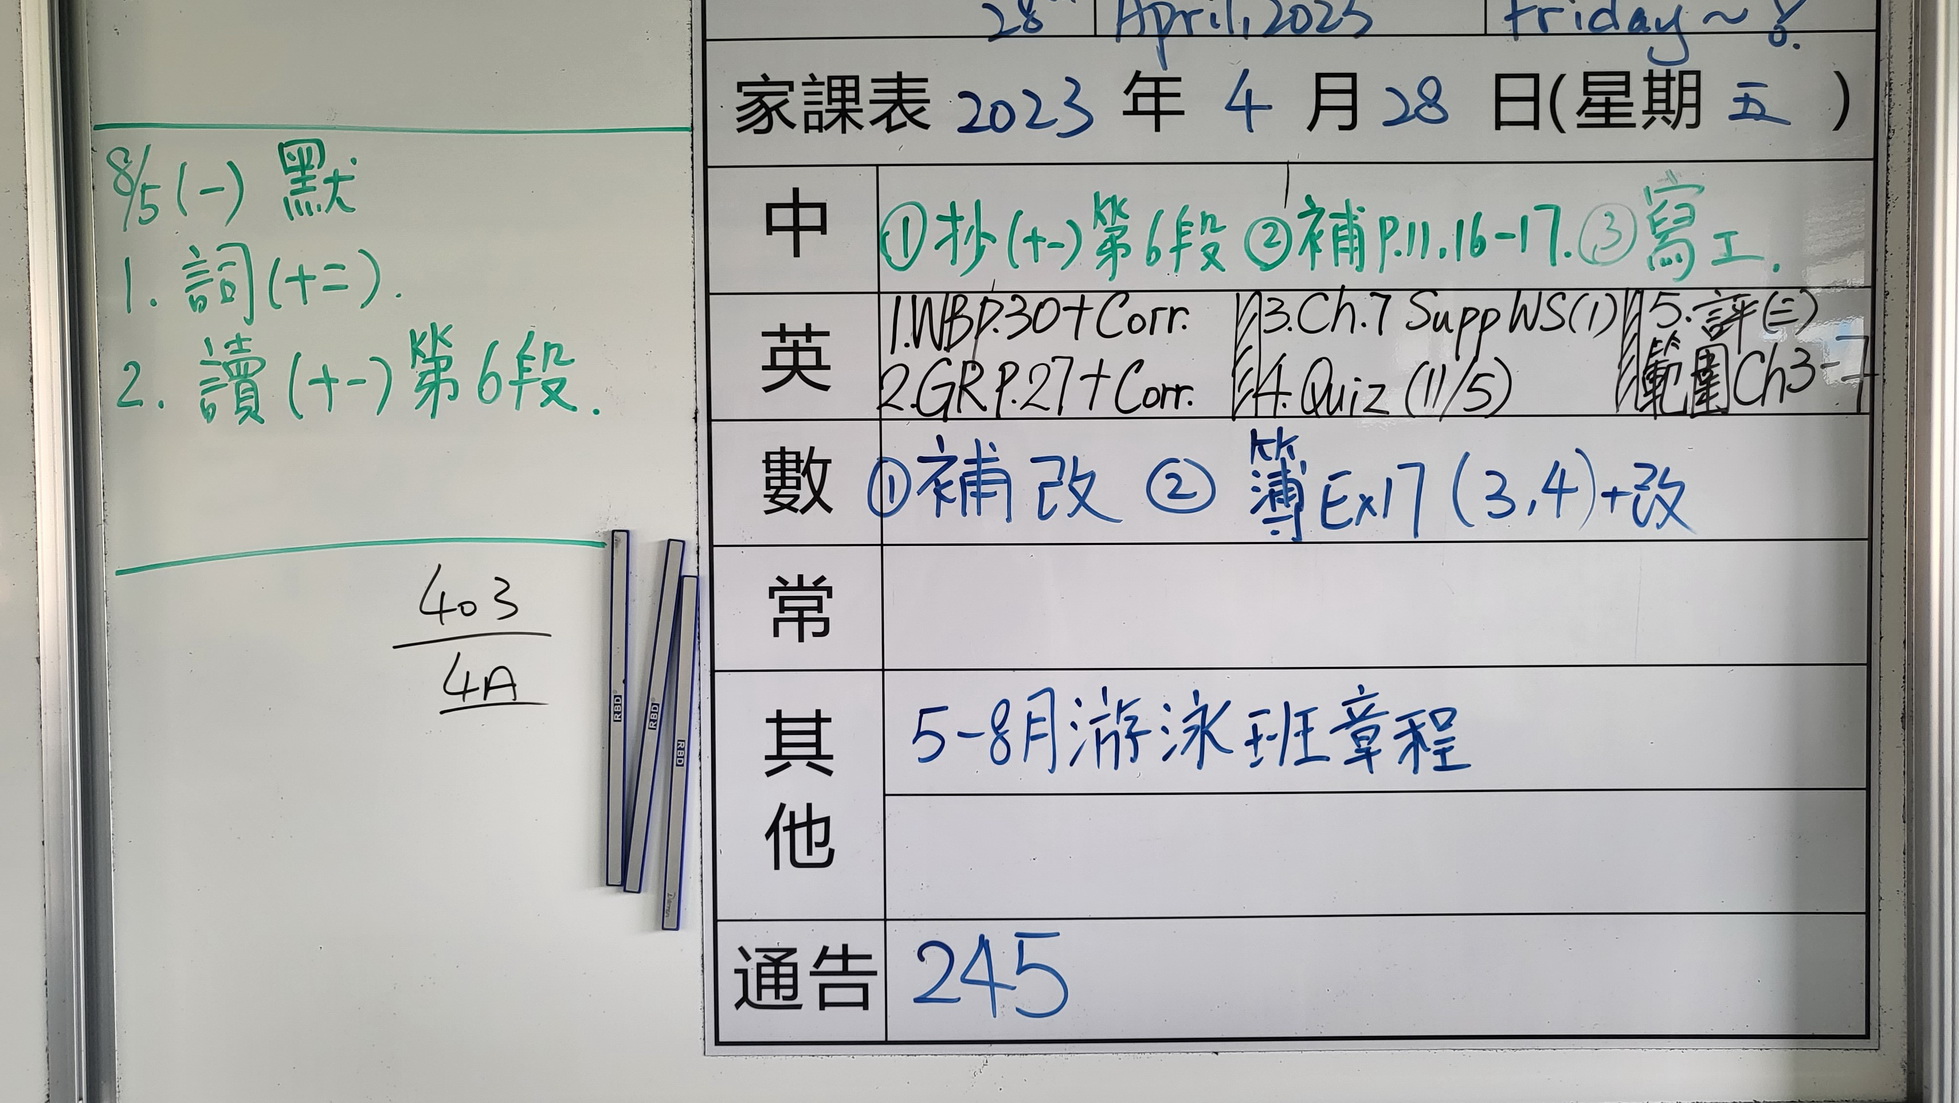 8/5(一) 默
1. 詞(十二).
2. 讀(十一)第6段.
403
4A
RBD
RBD
RBD
28th April, 2023 Friday~
家課表 2023 年 4 月 28 日(星期 五 )
中 ①抄(十一)第6段 ②補P.11.16-17. ③寫工.
英 1.WBP.30+Corr. 3.Ch.7 Supp WS(1) 5.評(三)
2.GRP.27+Corr. 4.Quiz (11/5) 範圍Ch3-7
數 ①補改 ② 簿Ex17 (3,4)+改
常
其他 5-8月游泳班章程
通告 245